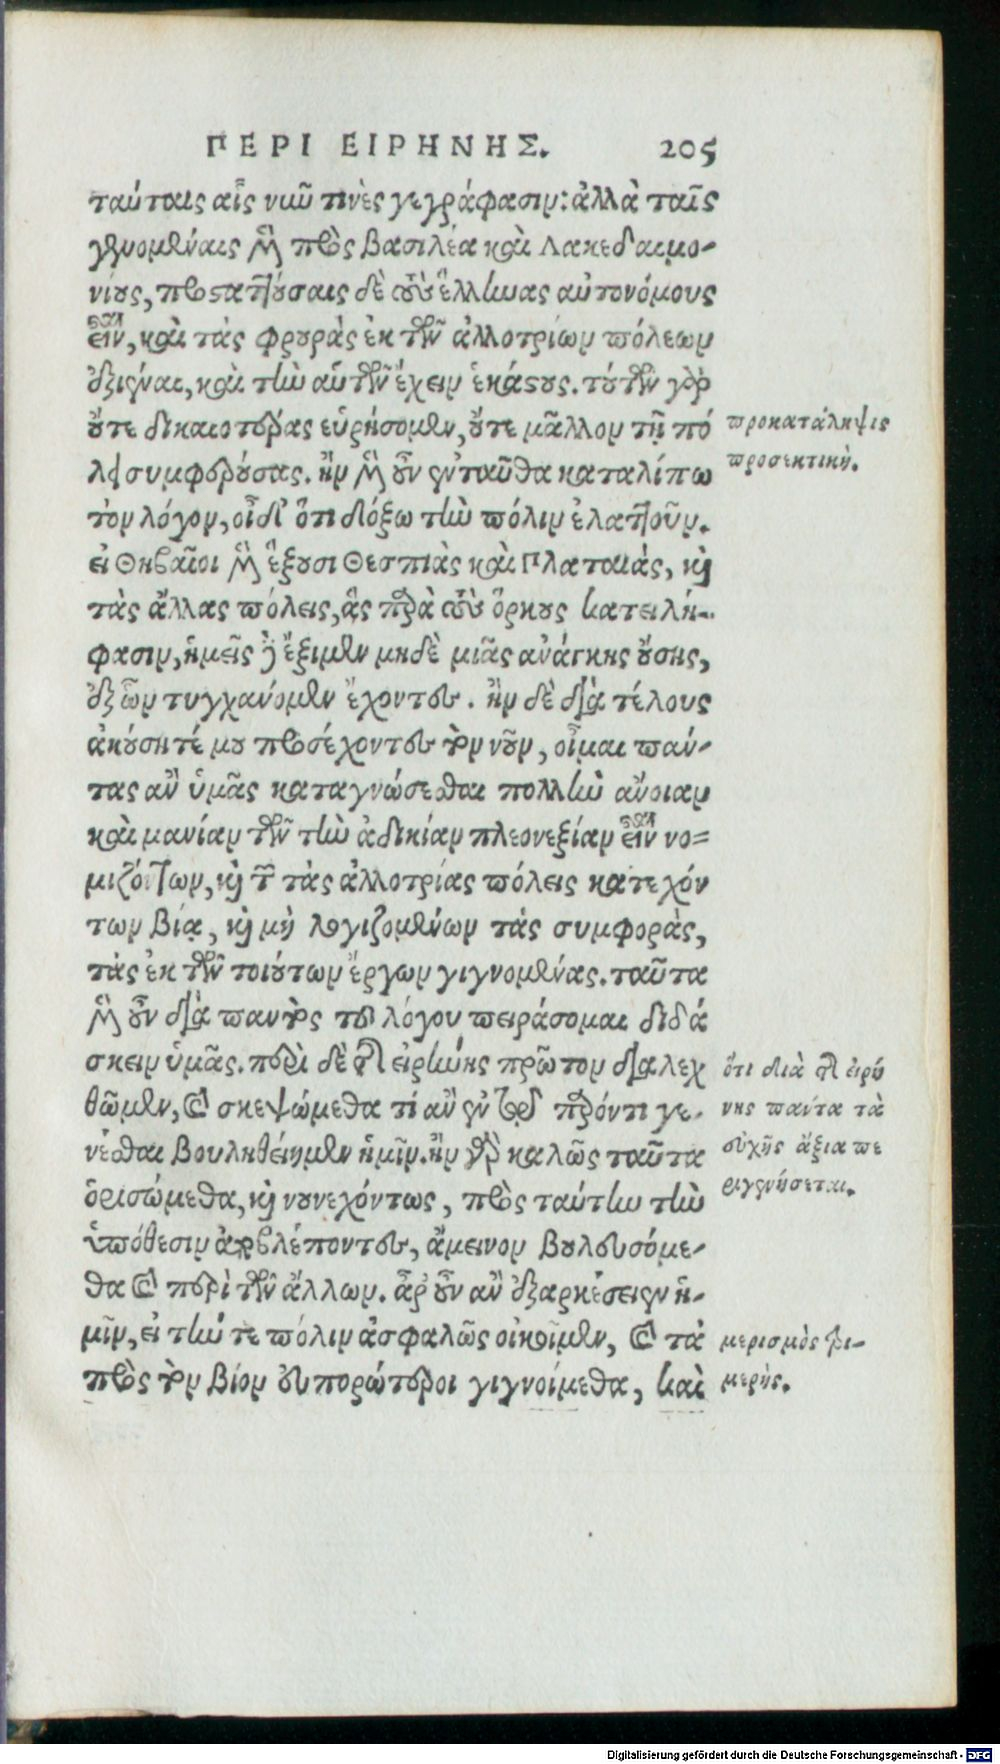 ΠΕΡΙ ΕΙΡΗΝΗΣ. 205
ταύταις αἷς νῦν τινὲς γεγράφασιν: ἀλλὰ ταῖς
γενομέναις μὲν πρὸς βασιλέα καὶ Λακεδαιμο-
νίους, προσταττούσαις δὲ τοὺς ἕλληνας αὐτονόμους
εἶναι, καὶ τὰς φρουρὰς ἐκ τῶν ἀλλοτρίων πόλεων
ἐξιέναι, καὶ τὴν αὑτῶν ἔχειν ἑκάστους. τούτων γὰρ
οὔτε δικαιοτέρας εὑρήσομεν, οὔτε μᾶλλον τῇ πό
λει συμφερούσας. ἢν μὲν οὖν ἐνταῦθα καταλίπω
τὸν λόγον, οἶδ' ὅτι δόξω τὴν πόλιν ἐλαττοῦν.
εἰ Θηβαῖοι μὲν ἕξουσι Θεσπιὰς καὶ Πλαταιάς, καὶ
τὰς ἄλλας πόλεις, ἃς παρὰ τοὺς ὅρκους κατειλή-
φασιν, ἡμεῖς δ' ἔξιμεν μηδὲ μιᾶς ἀνάγκης οὔσης,
ἐξ ὧν τυγχάνομεν ἔχοντες. ἢν δὲ διὰ τέλους
ἀκούσητέ μου προσέχοντες τὸν νοῦν, οἶμαι πάν-
τας ἂν ὑμᾶς καταγνώσεσθαι πολλὴν ἄνοιαν
καὶ μανίαν τῶν τὴν ἀδικίαν πλεονεξίαν εἶναι νο=
μιζόντων, καὶ τῶν τὰς ἀλλοτρίας πόλεις κατεχόν
των βίᾳ, καὶ μὴ λογιζομένων τὰς συμφορὰς,
τὰς ἐκ τῶν τοιούτων ἔργων γιγνομένας. ταῦτα
μὲν οὖν διὰ παντὸς τοῦ λόγου πειράσομαι διδά
σκειν ὑμᾶς. περὶ δὲ τῆς εἰρήνης πρῶτον διαλεχ
θῶμεν, καὶ σκεψώμεθα τί ἂν ἐν τῷ παρόντι γε-
νέσθαι βουληθείημεν ἡμῖν. ἢν γὰρ καλῶς ταῦτα
ὁρισώμεθα, καὶ νουνεχόντως, πρὸς ταύτην τὴν
ὑπόθεσιν ἀποβλέποντες, ἄμεινον βουλευσόμε-
θα καὶ περὶ τῶν ἄλλων. ἆρ' οὖν ἂν ἐξαρκέσειεν ἡ-
μῖν, εἰ τήν τε πόλιν ἀσφαλῶς οἰκοῖμεν, καὶ τὰ
πρὸς τὸν βίον εὐπορώτεροι γιγνοίμεθα, καὶ
προκατάληψις
προσεκτική.
ὅτι διὰ τῆς εἰρή
νης πάντα τὰ
εὐχῆς ἄξια πε
ριγενήσεται.
μερισμὸς τρι-
μερής.
Digitalisierung gefördert durch die Deutsche Forschungsgemeinschaft - DFG